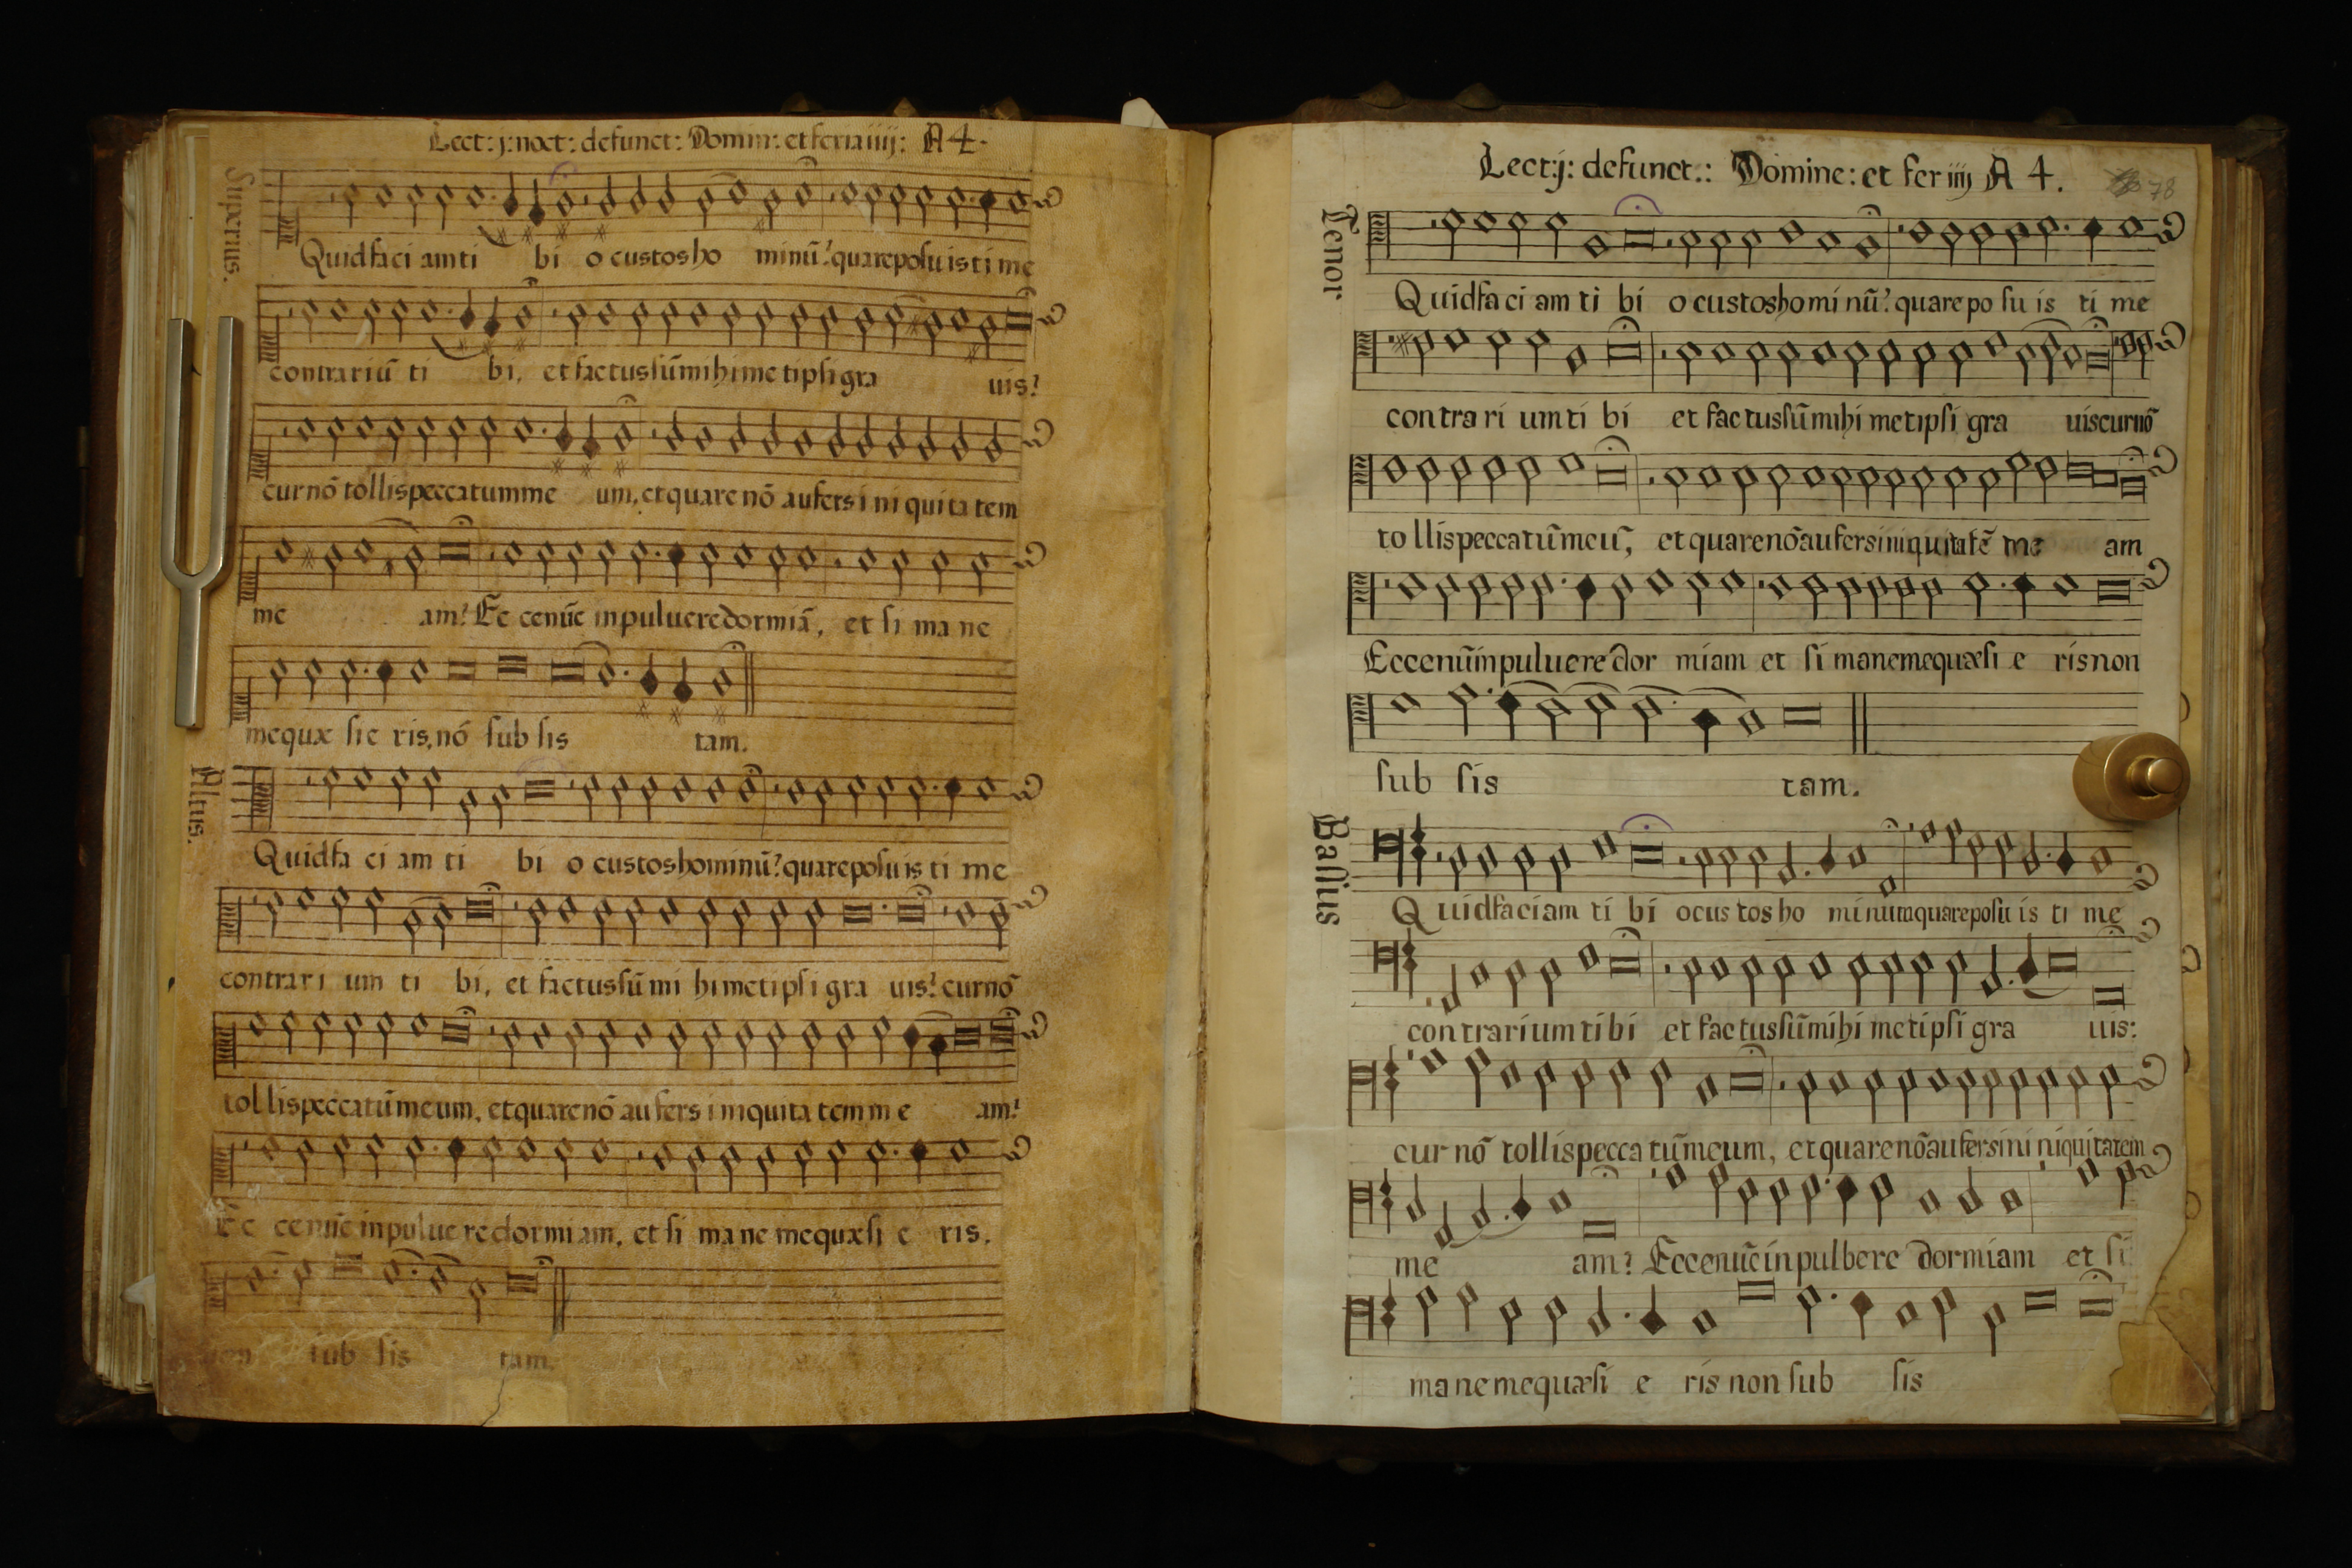 Lect: j: noct: defunct: Domin: et feria iiij: A 4.
Superius.
Quid faci am ti bi o custos ho minũ? quare posu is ti me
contrariũ ti bi, et factus sũ mihi me tipsi gra uis?
cur nõ tollis peccatum me um, et quare nõ aufers i ni qui ta tem
me am? Ec ce nũc in puluere dormiã, et si ma ne
me quæ sie ris, nõ sub sis tam.
Altus.
Quid fa ci am ti bi o custos hominũ? quare posu is ti me
contrari um ti bi, et factus sũ mi hi metipsi gra uis? cur nõ
tollis peccatũ meum, et quare nõ aufers iniquita tem m e am?
Ec ce nũc in pulue re dormi am, et si ma ne me quæsi e ris,
sub sis tam.
Lect: j: defunct.: Domine: et fer iiij A 4.
78
Tenor
Quid fa ci am ti bi o custos ho mi nũ? quare po su is ti me
contra ri um ti bi et factus sũ mihi metipsi gra uis cur nõ
tollis peccatũ meũ, et quare nõ aufers iniquitatẽ me am
Ecce nũ in puluere dor miam et si mane me quæsi e ris non
sub sis tam.
Bassus
Quid faciam ti bi o cus tos ho minum quare posu is ti me
contrarium ti bi et factus sũ mihi metipsi gra uis:
cur nõ tollis pecca tũ meum, et quare nõ aufers ini niquitatem
me am? Ecce nũc in pulbere dormiam et si
ma ne me quæsi e ris non sub sis